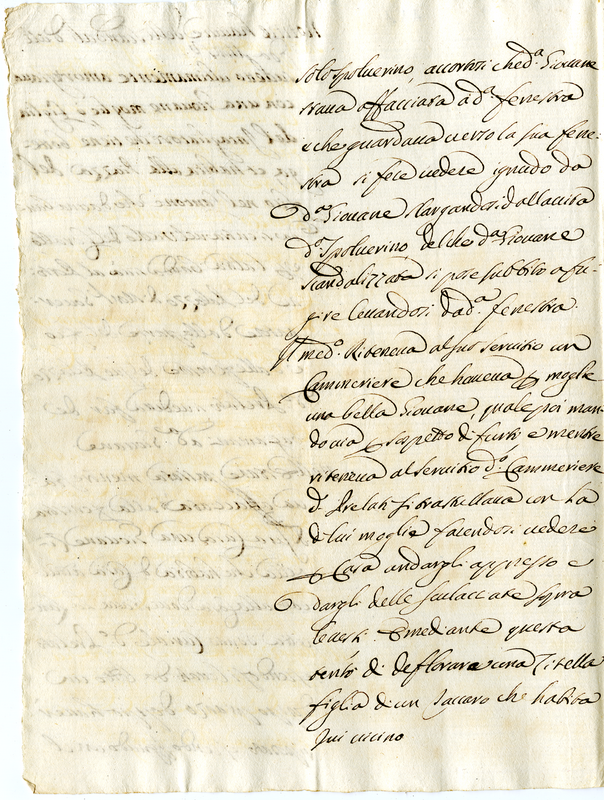 solo spoluerino, accortosi che d.ª Giouane
staua affacciata a d.ª fenestra
e che guardaua uerzo la sua fene-
stra si fece uedere ignudo da
d.ª Giouane slargandosi dallauita
d.º spoluerino del che d.ª Giouane
scandalizzata si pose subbito a fu-
gire leuandosi da d.ª fenestra.
Il med.º Riteneua al suo seruitio un
Cammeriere che haueua p moglie
una bella Giouane, quale poi man-
dò uia p sospetto di furti e mentre
riteneua al seruitio d.º Cammeriere
d.º Prelato si trastullaua con la
di lui moglie facendosi uedere
p Casa andargli appresso e
dargli delle sculacciate sopra
le uesti. E mediante questa
tentò di deflorare una Zitella
figlia di un che habita
qui uicino